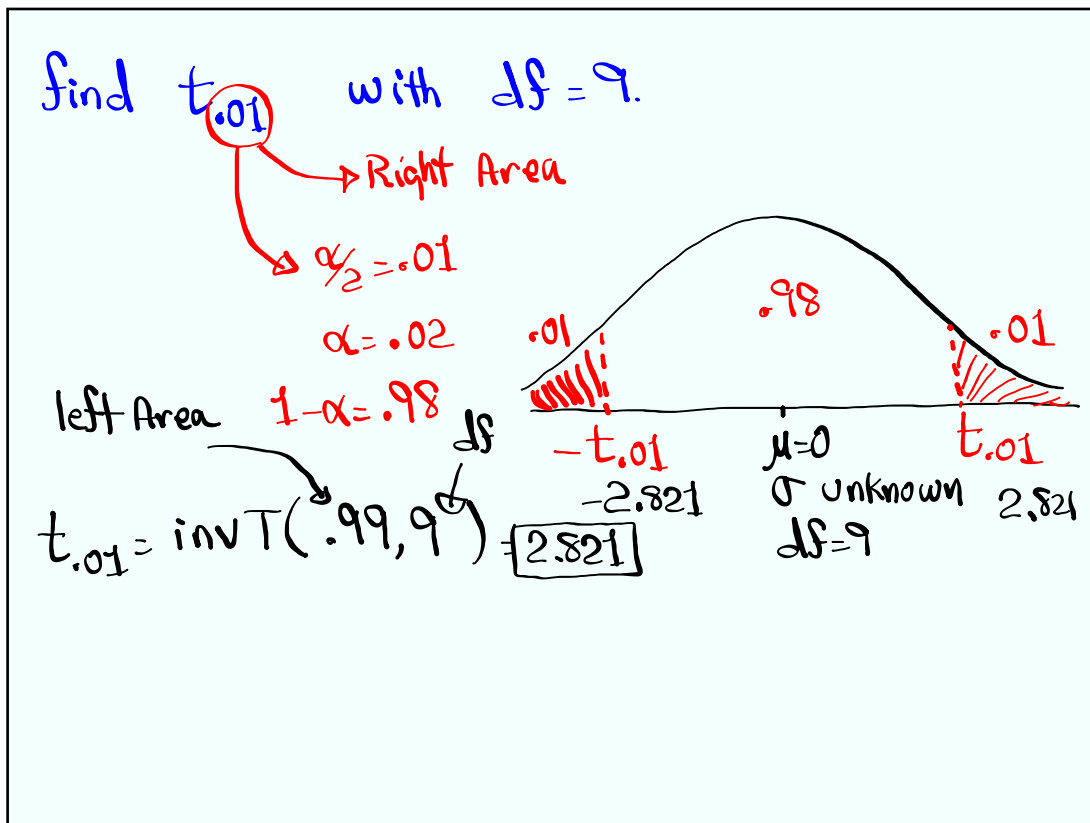 find t.01 with df = 9.
Right Area
α/2 = .01
α = .02
1-α = .98
left Area
df
t.01 = invT(.99, 9) = 2.821
.98
.01
.01
-t.01
μ=0
t.01
-2.821
σ unknown
2.821
df=9